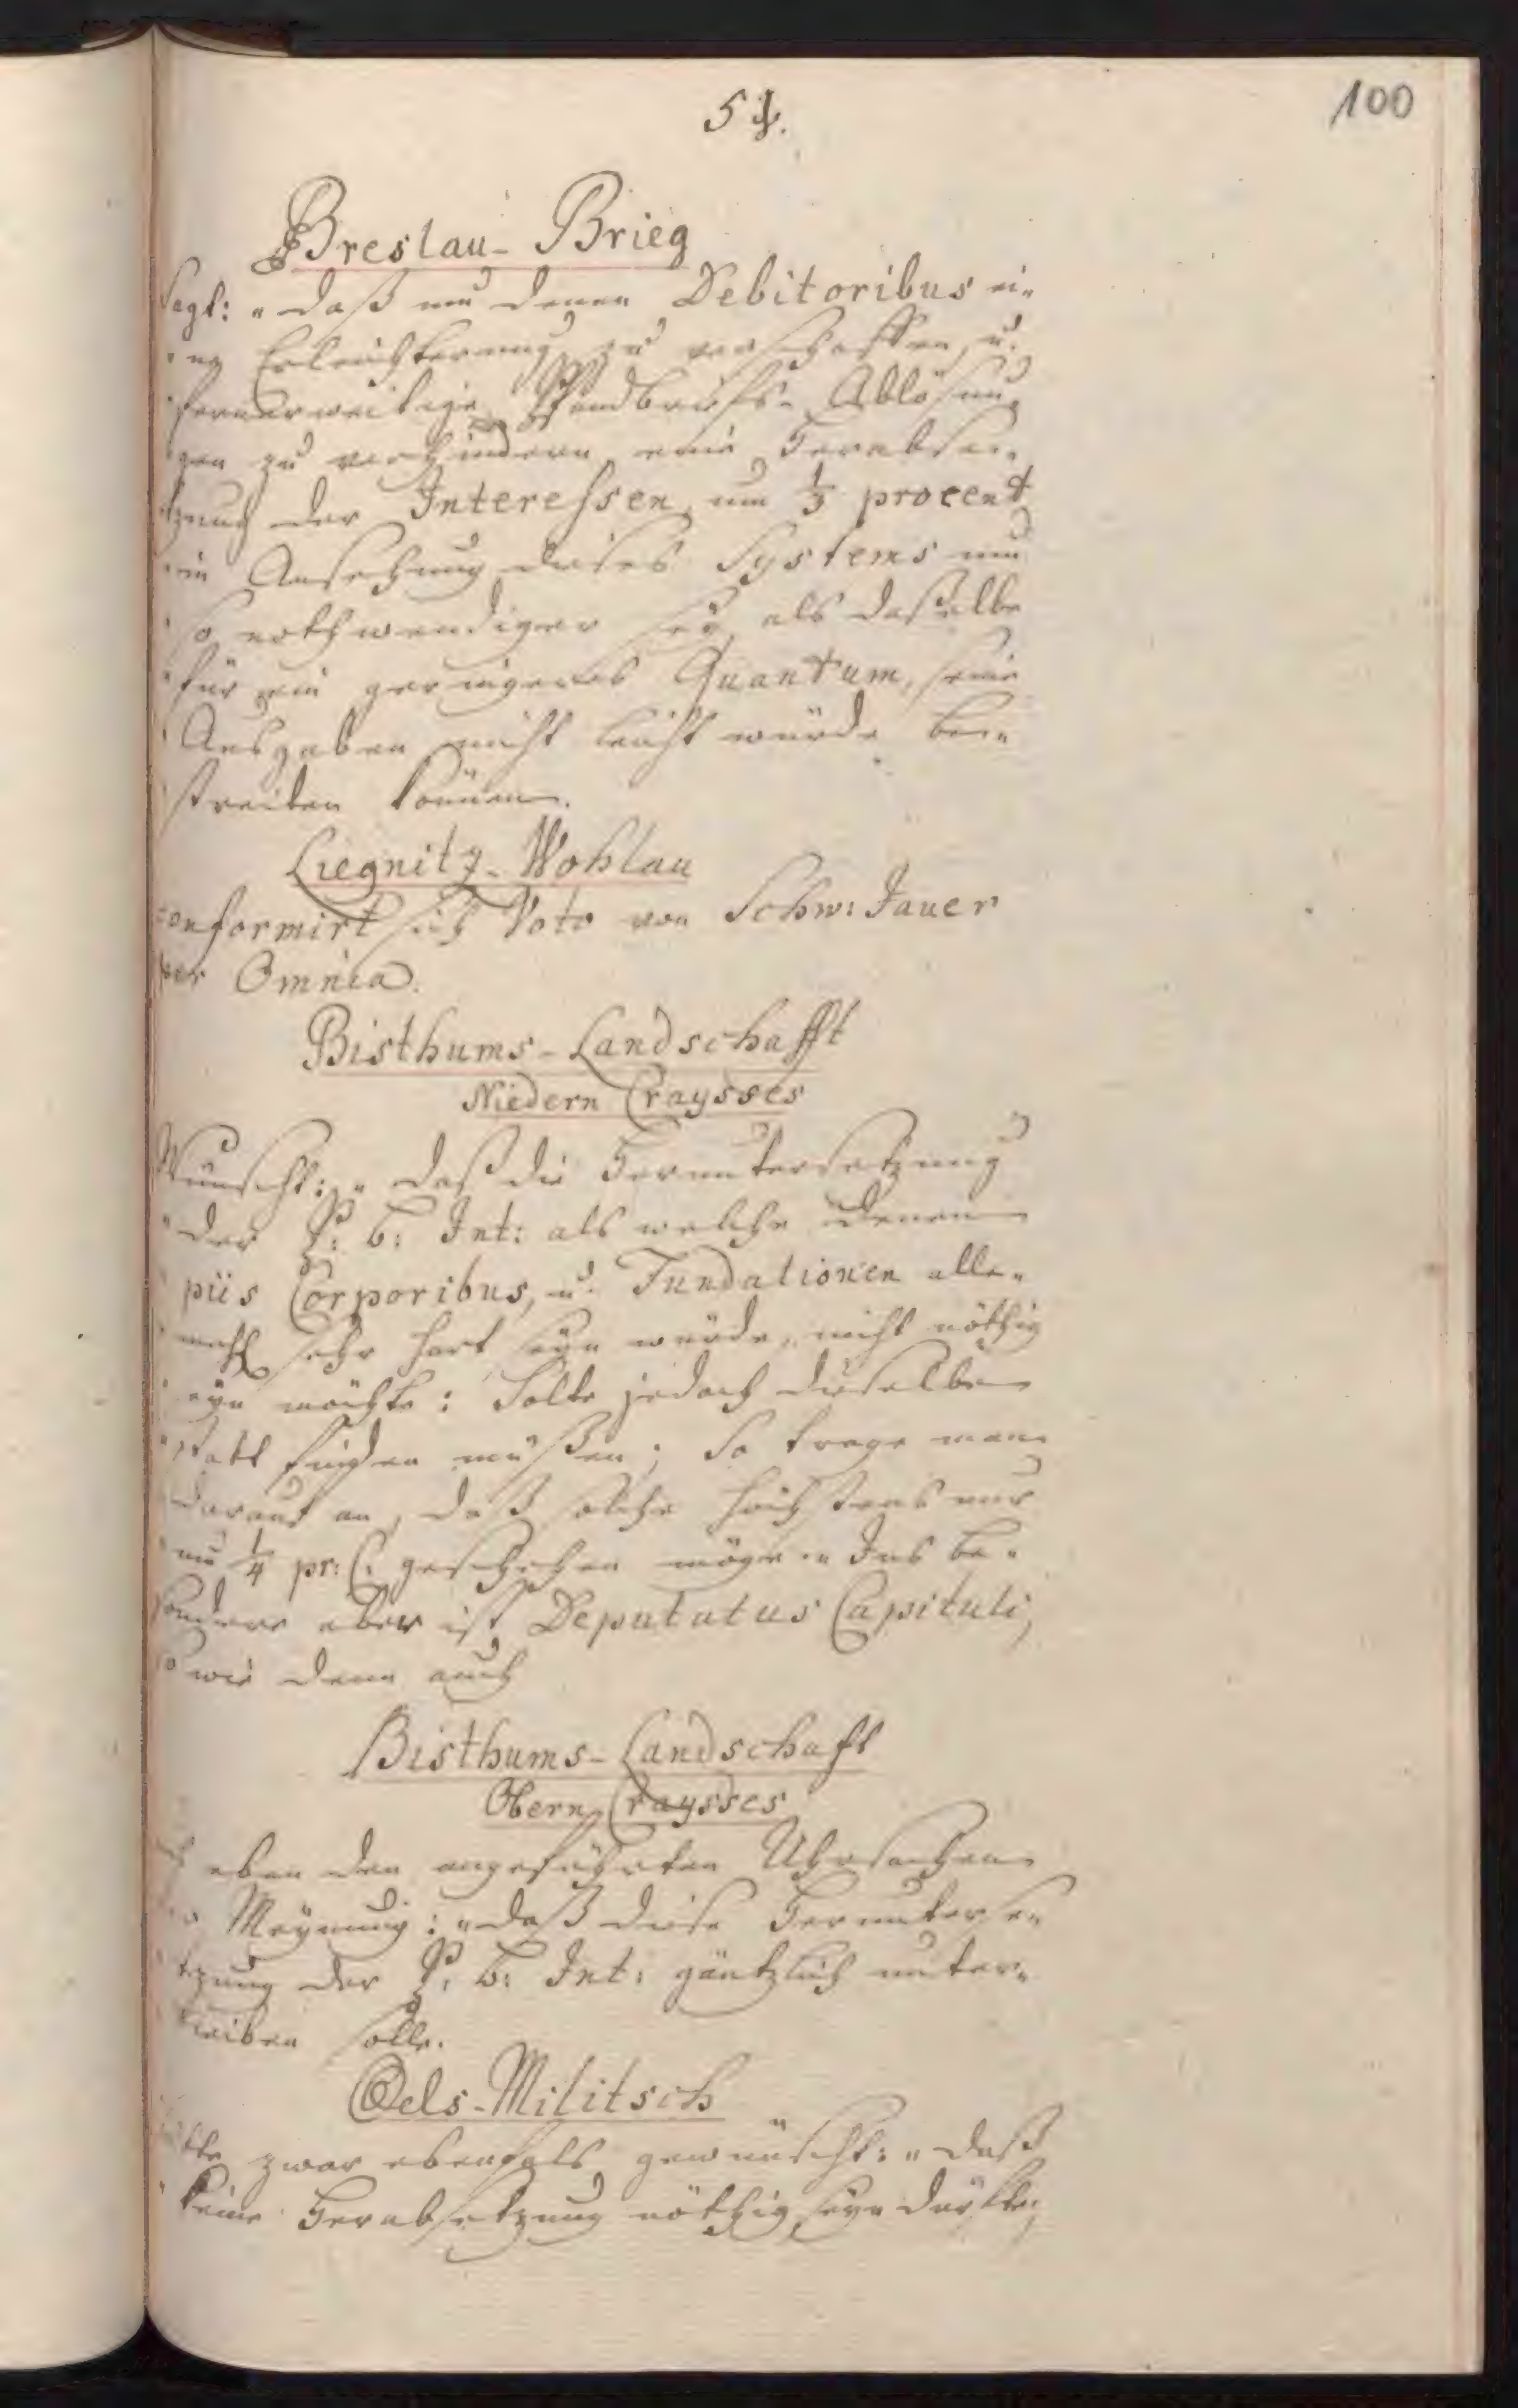 100
54.
Breslau-Brieg
sagt: „daß um denen Debitoribus ei„
„ne Erleichterung zu verschaffen, u.
fernerweitige Pfandbriefs-Ablösun„
gen zu verhindern eine Herabse„
tzung der Interessen um 1/3 procent
in Ansehung dieses Systems um
so nothwendiger sey, als daßelbe
für ein geringeres Quantum, seine
Ausgaben nicht leicht würde be„
streiten können.
Liegnitz-Wohlau
conformirt sich Voto von Schw: Jauer
per Omnia.
Bisthums-Landschafft
Niedern Craysses
Wünscht: „daß die Heruntersetzung
„der P: b: Int: als welche denen
piis Corporibus, u. Fundationen alle„
mahl sehr hart seyn würde, nicht nöthig
seyn möchte: Solte jedoch dieselbe
„statt finden müßen; So trage man
darauf an, daß solche höchstens nur
um 1/4 pr: C. geschehen möge „ Ins be„
sondere aber ist Deputatus Capituli,
so wie denn auch
Bisthums-Landschaft
Obern Craysses
eben den angeführten Uhrsachen
Meynung: „daß diese Herunterse„
tzung der P: b: Int: gäntzlich unter„
bleiben solle.
Oels-Militsch
hätte zwar ebenfals gewünscht: „daß
keine Herabsetzung nöthig seyn dürfte,